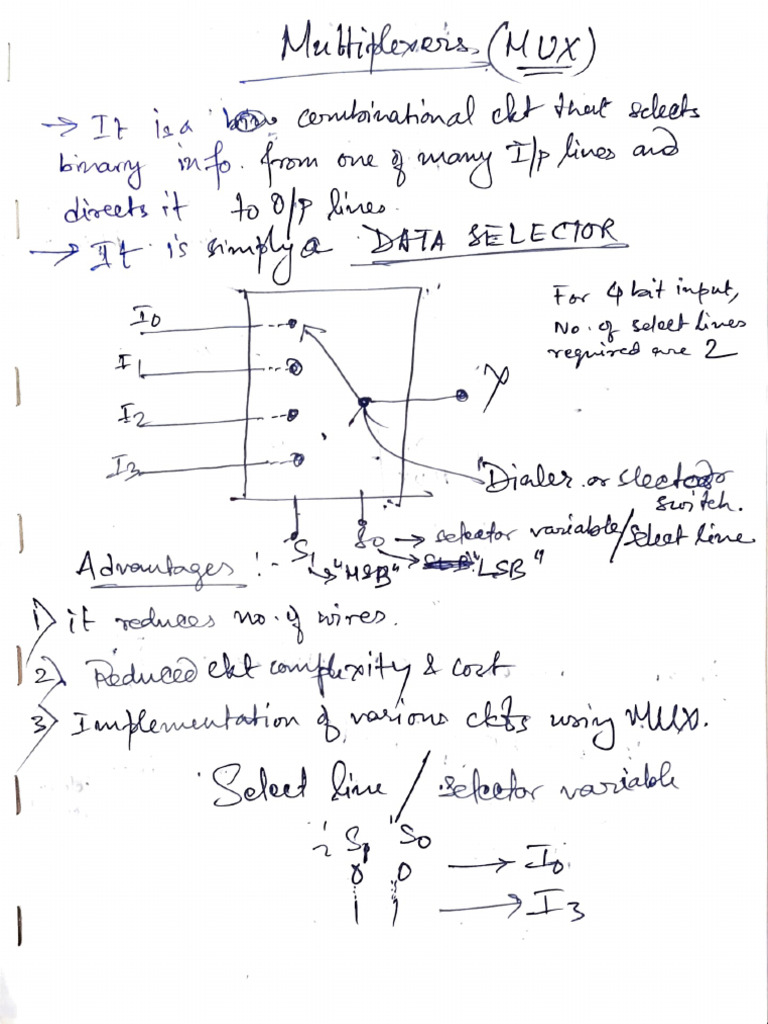 Multiplexers (MUX)
→ It is a combinational ckt that selects
binary info. from one of many I/p lines and
directs it to O/p lines.
→ It is simply a DATA SELECTOR
For 4 bit input,
No. of select lines
required are 2
I0
I1
I2
I3
Y
"Dialer or slector
switch.
S1 S0 → selector variable/select line
"MSB" "LSB"
Advantages :-
1) it reduces no. of wires.
2) Reduced ckt complexity & cost
3) Implementation of various ckts using MUX.
Select line / selector variable
S1 S0
0 0 → I0
1 1 → I3